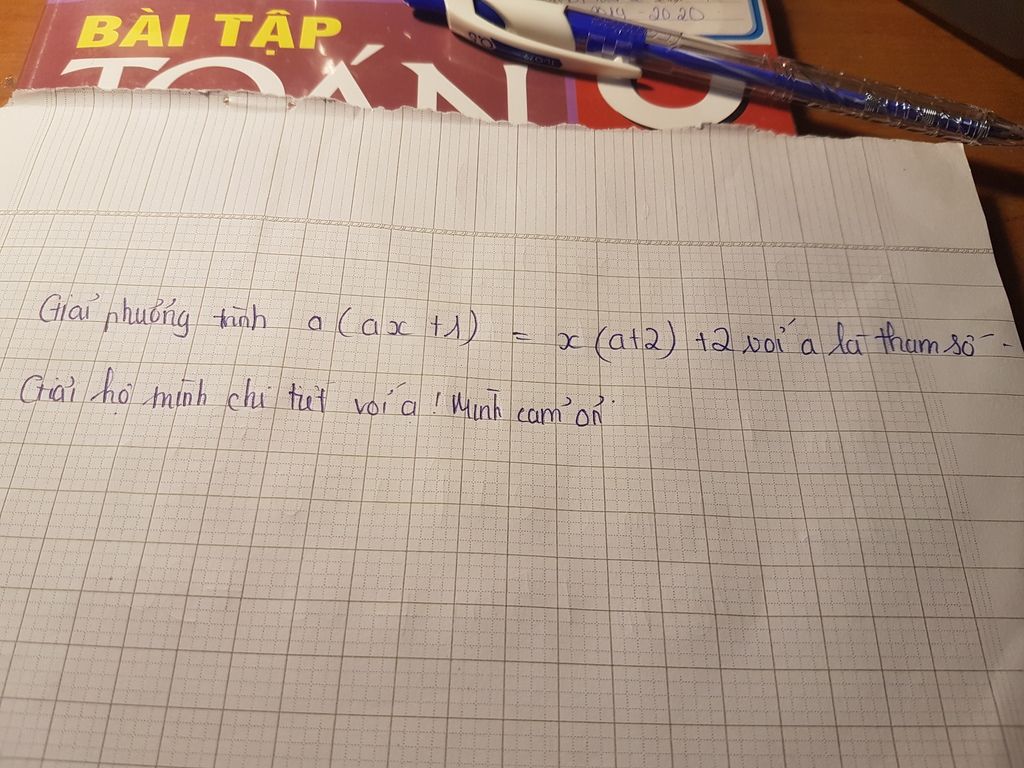 BÀI TẬP
2019 - 2020
TOÁN 8
Giải phương trình a(ax+1) = x(a+2)+2 với a là tham số.
Giải hộ mình chi tiết với ạ! Mình cảm ơn